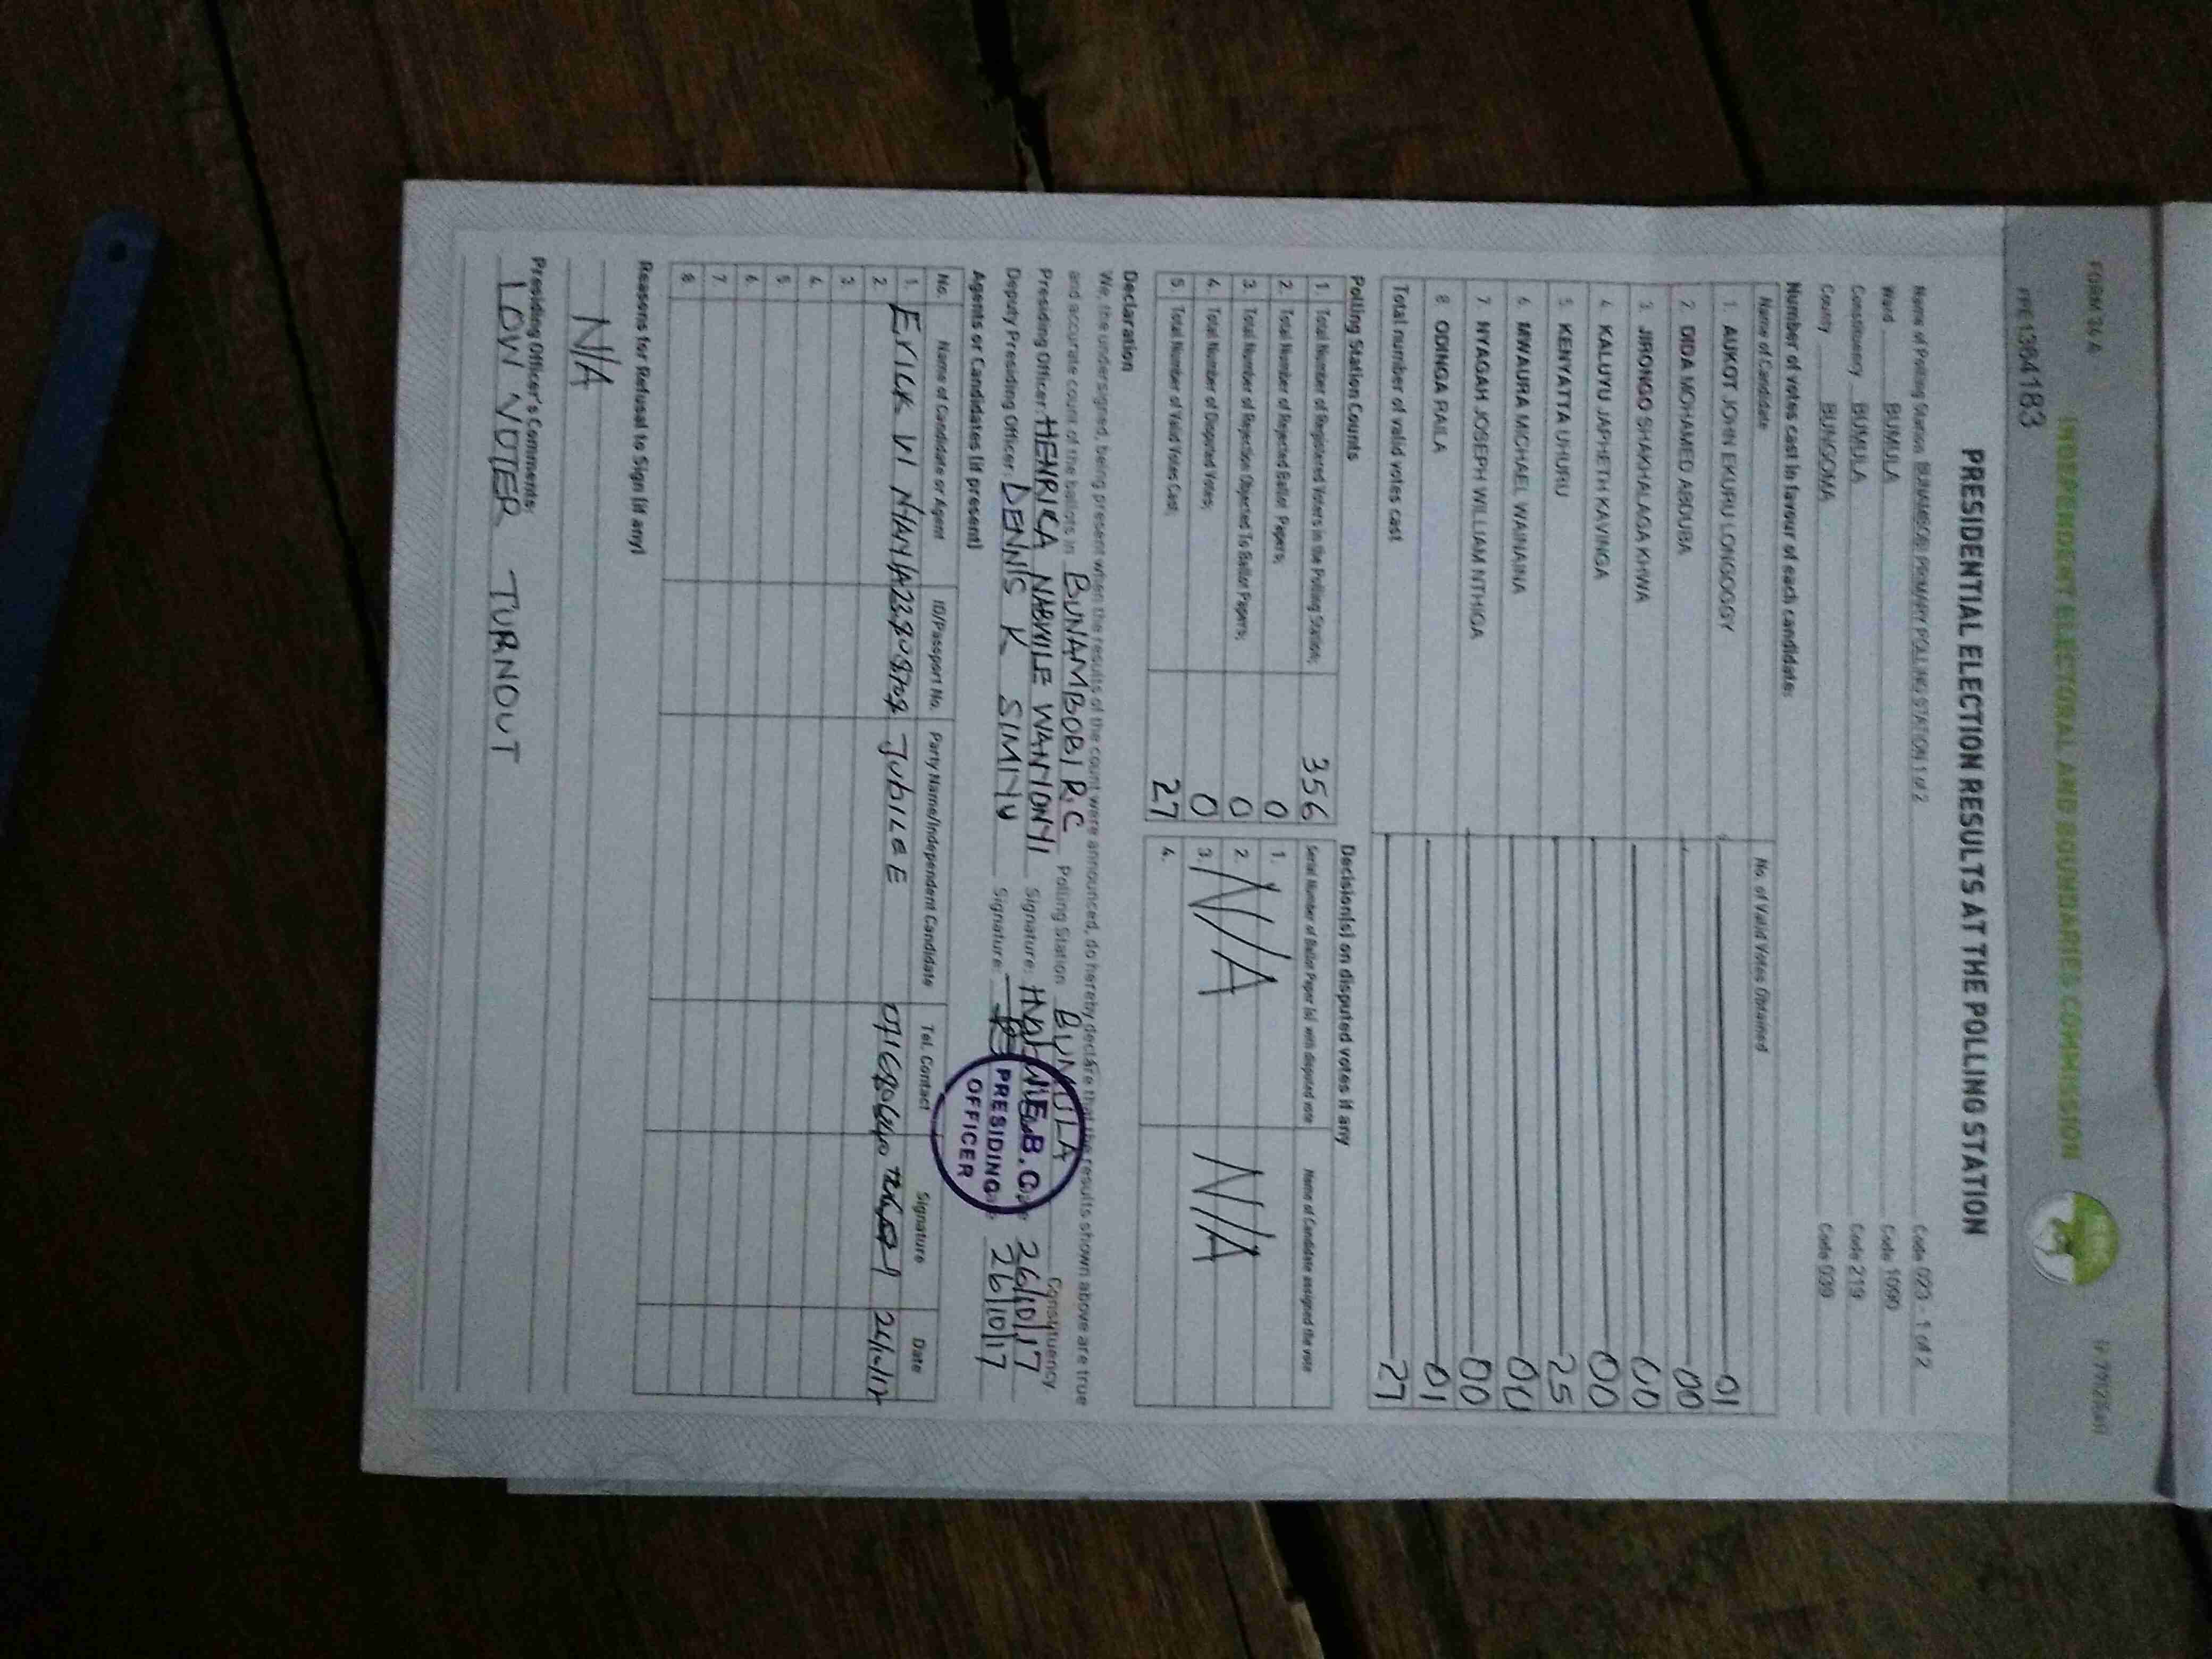 FORM 34 A
INDEPENDENT ELECTORAL AND BOUNDARIES COMMISSION
1364183
PRESIDENTIAL ELECTION RESULTS AT THE POLLING STATION
Name of Polling Station BUNAMBOBI PRIMARY POLLING STATION 1 of 2 Code 023 - 1 of 2
Ward BUMULA Code 1090
Constituency BUMULA Code 219
County BUNGOMA Code 039
Number of votes cast in favour of each candidate:
Name of Candidate No. of Valid Votes Obtained
1. AUKOT JOHN EKURU LONGOGGY 01
2. DIDA MOHAMED ABDUBA 00
3. JIRONGO SHAKHALAGA KHWA 00
4. KALUYU JAPHETH KAVINGA 00
5. KENYATTA UHURU 25
6. MWAURA MICHAEL WAINAINA 00
7. NYAGAH JOSEPH WILLIAM NTHIGA 00
8. ODINGA RAILA 01
Total number of valid votes cast 27
Polling Station Counts
1. Total Number of Registered Voters in the Polling Station; 356
2. Total Number of Rejected Ballot Papers; 0
3. Total Number of Rejection Objected To Ballot Papers; 0
4. Total Number of Disputed Votes; 0
5. Total Number of Valid Votes Cast; 27
Decision(s) on disputed votes if any
Serial Number of Ballot Paper (s) with disputed vote Name of Candidate assigned the vote
1.
2. N/A N/A
3.
4.
Declaration
We, the undersigned, being present when the results of the count were announced, do hereby declare that the results shown above are true
and accurate count of the ballots in BUNAMBOBI R.C Polling Station BUMULA Constituency
Presiding Officer: HENRICA NABWILE WANYONYI Signature: 26/10/17
Deputy Presiding Officer: DENNIS K SIMIYU Signature: 26/10/17
PRESIDING
OFFICER
Agents or Candidates (if present)
No. Name of Candidate or Agent ID/Passport No. Party Name/Independent Candidate Tel. Contact Signature Date
1. ERICK JUBILEE
2.
3.
4.
5.
6.
7.
8.
Reasons for Refusal to Sign (if any)
N/A
Presiding Officer's Comments:
LOW VOTER TURNOUT